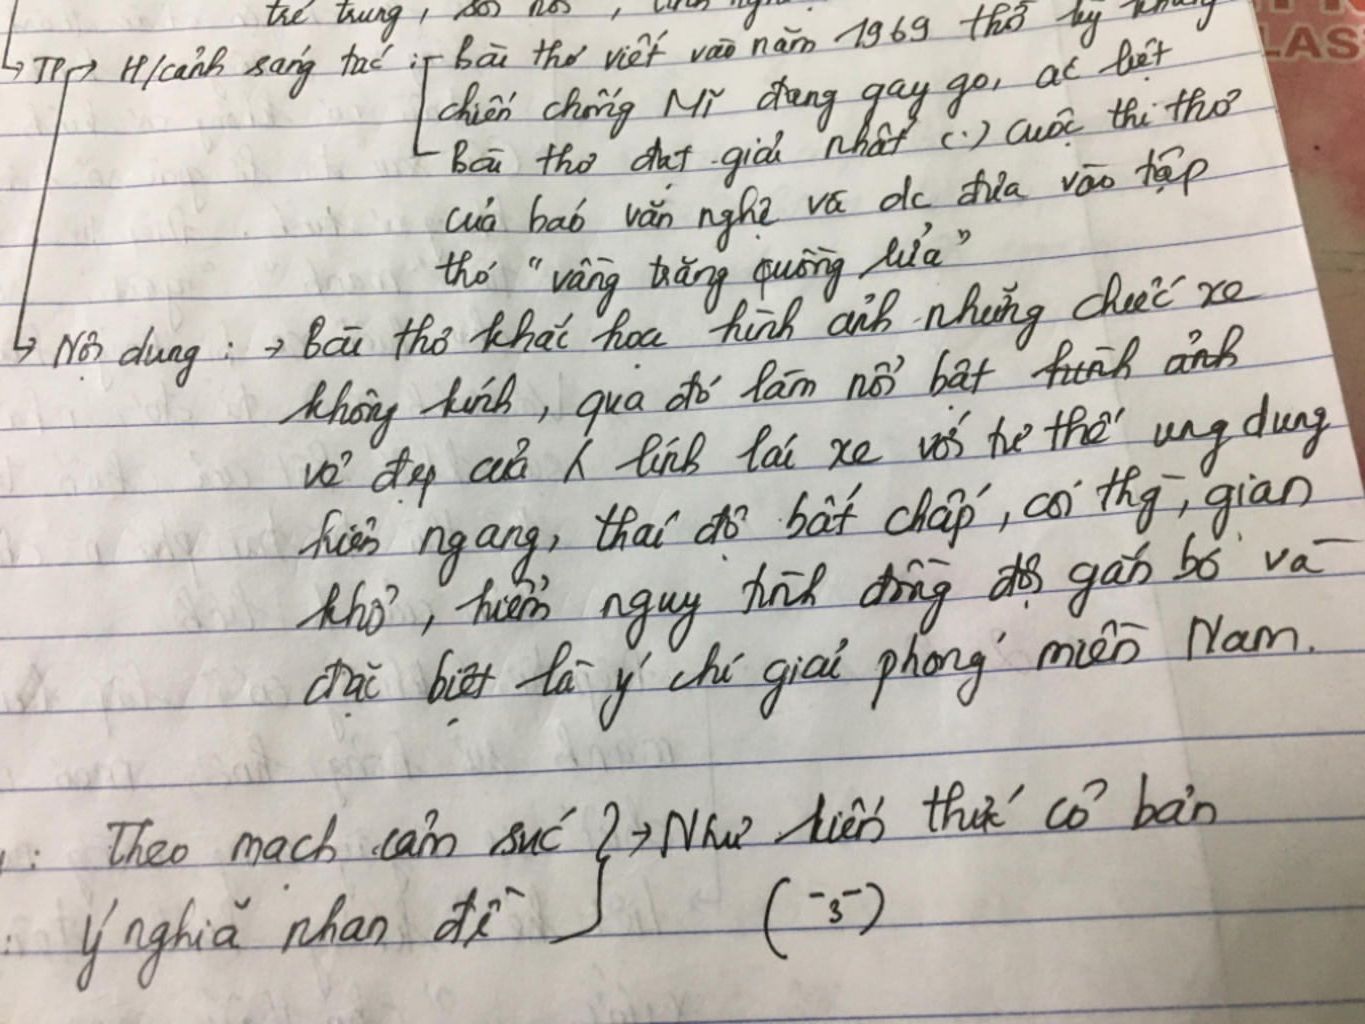 trẻ trung, sôi nổi,
↳ TP → H/cảnh sáng tác : - Bài thơ viết vào năm 1969 thờ kỳ kháng
LAS
chiến chống Mĩ đang gay go, ác liệt
- Bài thơ đạt giải nhất (.) cuộc thi thơ
của baó văn nghệ và đc đưa vào tập
thơ "vầng trăng quầng lửa"
↳ Nội dung : → Bài thơ khắc họa hình ảnh những chiếc xe
không kính, qua đó làm nổi bật hình ảnh
vẻ đẹp của lính lái xe với tư thế ung dung
hiên ngang, thái độ bất chấp, coi thg, gian
khổ, hiểm nguy tình đồng đội gắn bó và
đặc biệt là ý chí giải phóng miền Nam.
: Theo mạch cảm xúc } → Như kiến thức cơ bản
: ý nghĩa nhan đề